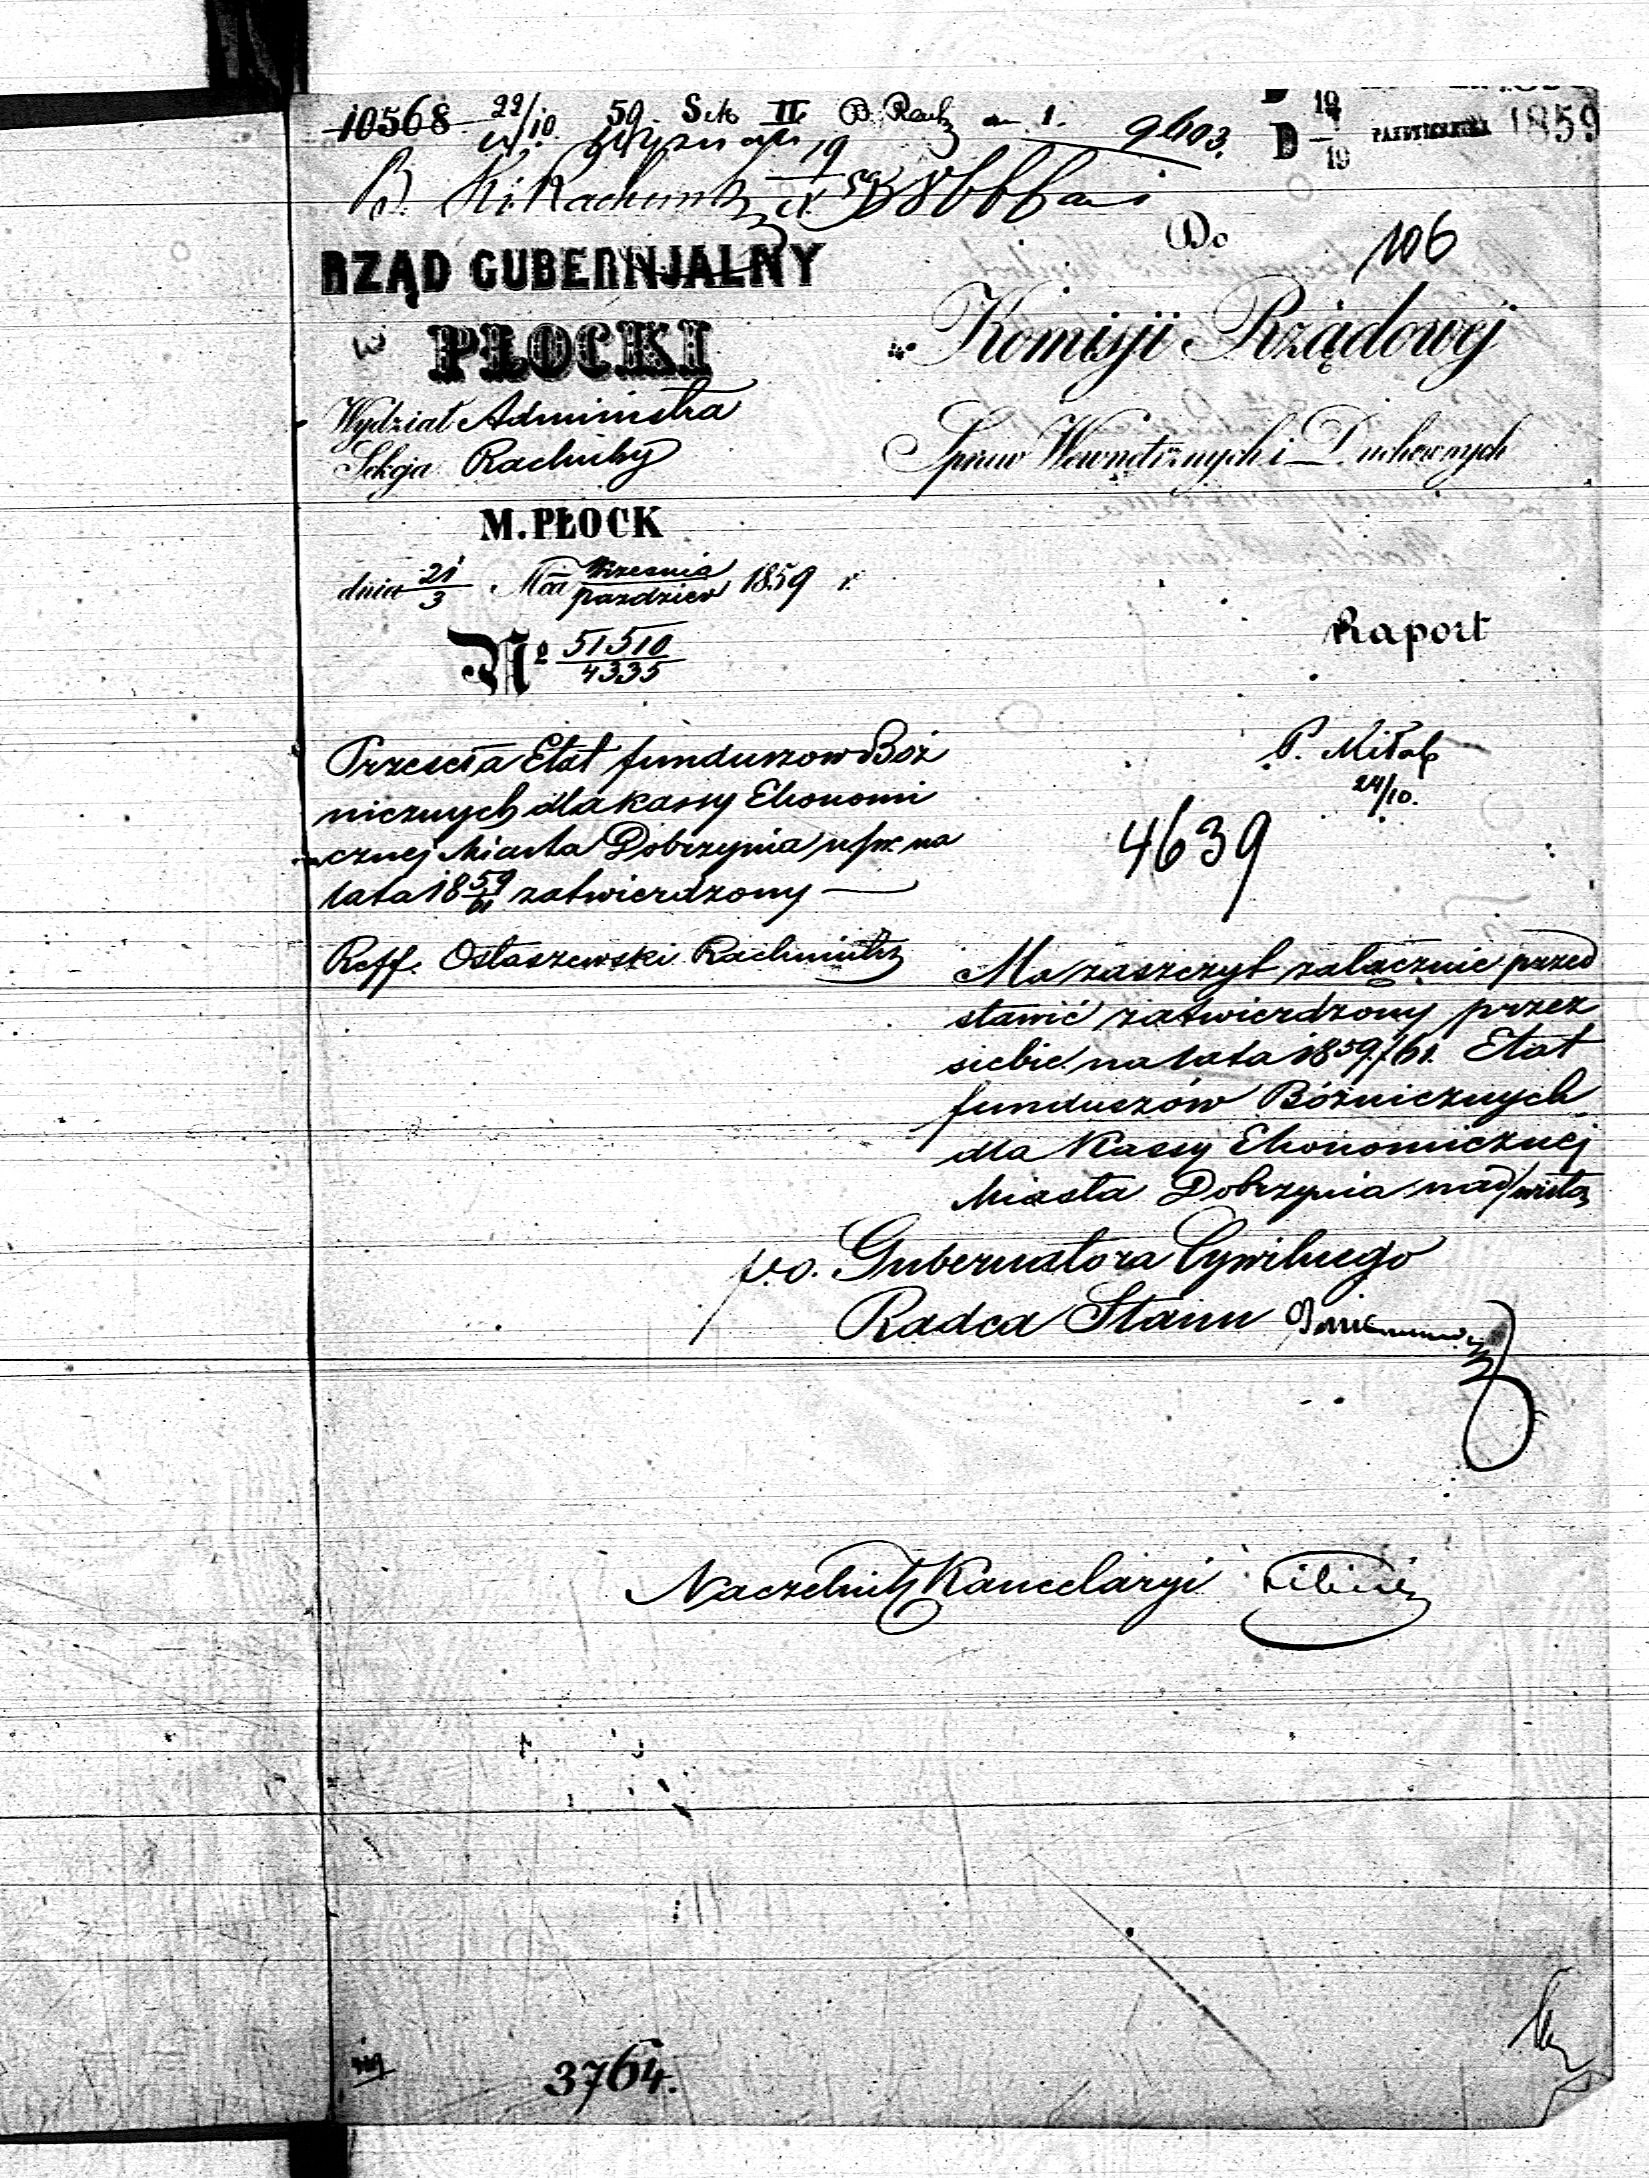 10568 22/10 59. Sek II B. Rach 1. 9603.
D 19/19 PAŹDZIERNIKA 1859
Do
106
RZĄD GUBERNJALNY
PŁOCKI
Komisji Rządowej
Wydział Administra
Sekcja Rachuby
Spraw Wewnętrznych i Duchownych
M. PŁOCK
dnia 21/3 Mca Września/paździer 1859 r.
Raport
No 51510/4335
Przeseła Etat funduszow Boż
nicznych dla kassy Ekonomi
cznej Miasta Dobrzynia n/w. na
lata 1859/61 zatwierdzony
24/10.
4639
Reff. Ostaszewski Rachmistrz
Ma zaszczyt załącznie przed
stawić zatwierdzony przez
siebie na lata 1859/61. Etat
funduszów Bóżniczych
dla Kassy Ekonomicznej
Miasta Dobrzynia nad/wisłą
p.o. Gubernatora Cywilnego
Radca Stanu
Naczelnik Kancelaryi
3764.